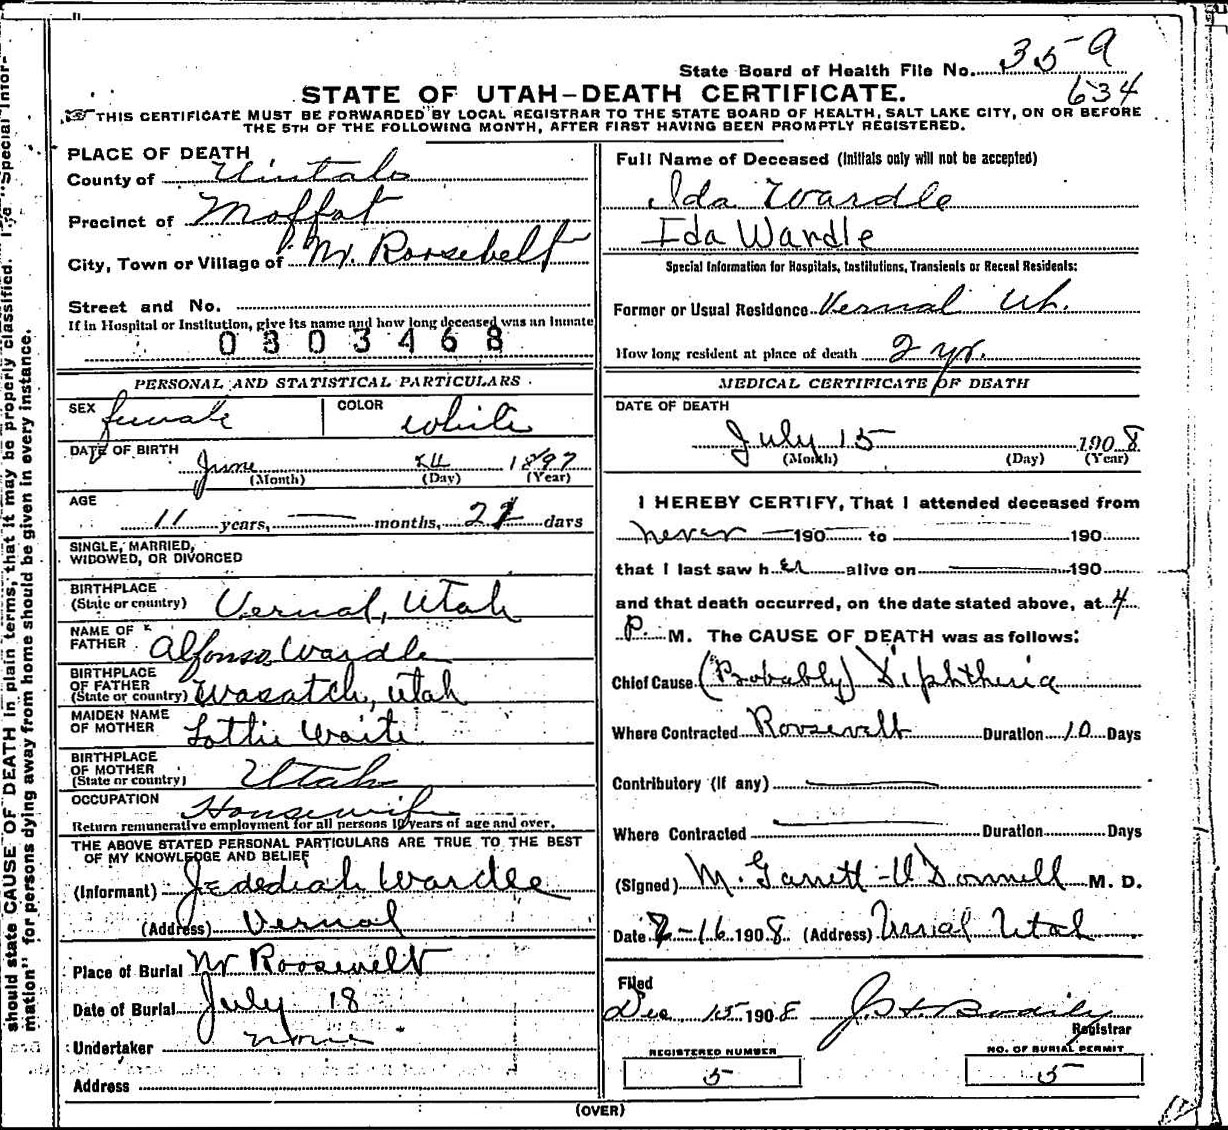 State Board of Health File No. 35-9
634
STATE OF UTAH—DEATH CERTIFICATE.
THIS CERTIFICATE MUST BE FORWARDED BY LOCAL REGISTRAR TO THE STATE BOARD OF HEALTH, SALT LAKE CITY, ON OR BEFORE
THE 5TH OF THE FOLLOWING MONTH, AFTER FIRST HAVING BEEN PROMPTLY REGISTERED.
PLACE OF DEATH
County of Uintah
Precinct of Moffat
City, Town or Village of Nr. Roosebelt
Street and No.
If in Hospital or Institution, give its name and how long deceased was an inmate
0303468
PERSONAL AND STATISTICAL PARTICULARS
SEX female COLOR white
DATE OF BIRTH
June 24 1897
(Month) (Day) (Year)
AGE
11 years, — months, 22 days
SINGLE, MARRIED,
WIDOWED, OR DIVORCED
BIRTHPLACE
(State or country) Vernal, Utah
NAME OF
FATHER Alfonso Wardle
BIRTHPLACE
OF FATHER
(State or country) Wasatch, Utah
MAIDEN NAME
OF MOTHER Lottie Waite
BIRTHPLACE
OF MOTHER
(State or country) Utah
OCCUPATION Housewife
Return remunerative employment for all persons 10 years of age and over.
THE ABOVE STATED PERSONAL PARTICULARS ARE TRUE TO THE BEST
OF MY KNOWLEDGE AND BELIEF
(Informant) Jedediah Wardle
(Address) Vernal
Place of Burial Nr Roosevelt
Date of Burial July 18
Undertaker none
Address
Full Name of Deceased (Initials only will not be accepted)
Ida Wardle
Ida Wardle
Special Information for Hospitals, Institutions, Transients or Recent Residents:
Former or Usual Residence Vernal Ut.
How long resident at place of death 2 yr.
MEDICAL CERTIFICATE OF DEATH
DATE OF DEATH
July 15 1908
(Month) (Day) (Year)
I HEREBY CERTIFY, That I attended deceased from
never — 190 to 190
that I last saw her alive on 190
and that death occurred, on the date stated above, at 4
P. M. The CAUSE OF DEATH was as follows:
Chief Cause (Probably) Diphtheria
Where Contracted Roosevelt Duration 10 Days
Contributory (if any) —
Where Contracted — Duration Days
(Signed) M. Garrett-O'Donnell M. D.
Date -16 1908. (Address) Vernal Utah
Filed
Dec 15 1908 J. H. Bodily
Registrar
REGISTERED NUMBER
5
NO. OF BURIAL PERMIT
5
(OVER)
should state CAUSE OF DEATH in plain terms, that it may be properly classified. The "Special Infor-
mation" for persons dying away from home should be given in every instance.